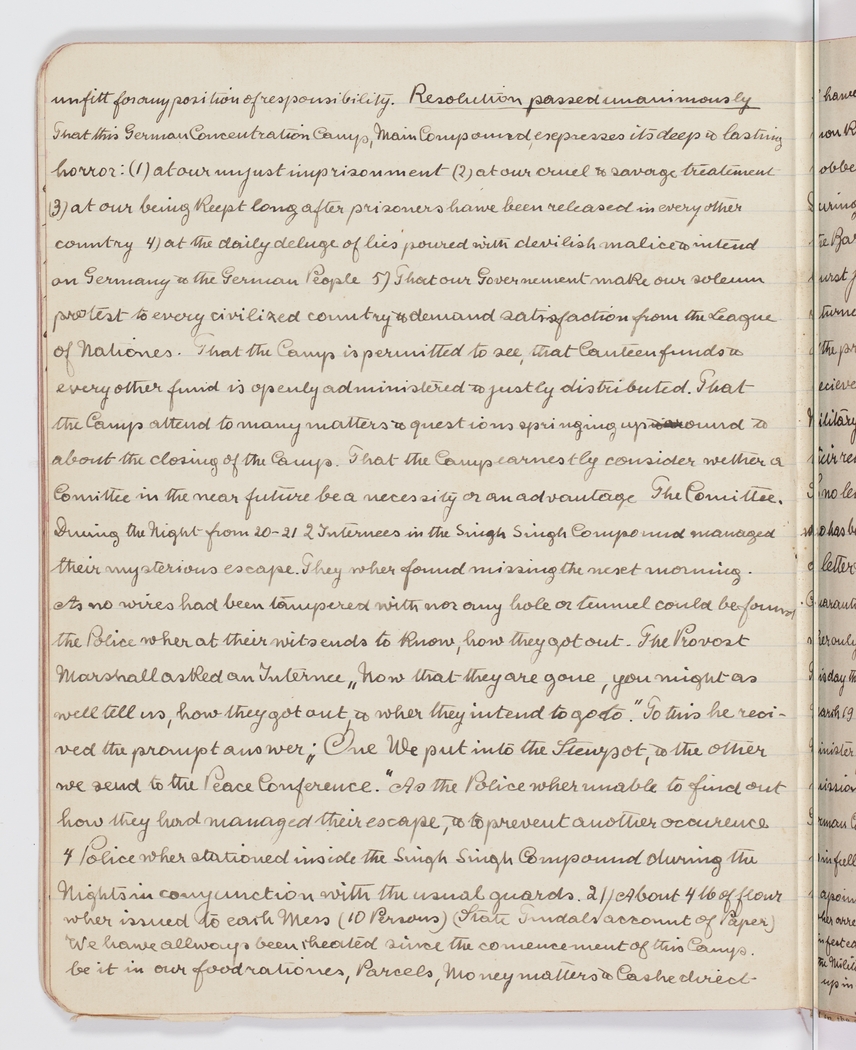 unfitt for any position of responsibility. Resolution passed unanimously
That this German Concentration Camp, Main Compound, expresses its deep & lasting
horror: (1) at our unjust imprisonment (2) at our cruel & savage treatement
(3) at our being Keept long after prisoners hawe been released in every other
country 4) at the daily deluge of lies poured with devilish malice & intend
on Germany & the German People 5) That our Governement make our solemn
protest to every civilized country & demand satisfaction from the League
of Nationes. That the Camp is permitted to see, that Canteen funds &
every other fund is openly administered & justly distributed. That
the Camp attend to many matters & questions springing up around &
about the closing of the Camp. That the Camp earnestly consider wether a
Comittee in the near future be a necessity or an advantage The Comittee.
During the Night from 20-21 2 Internees in the Singh Singh Compound managed
their mysterious escape. They wher found missing the next morning.
As no wires had been tampered with nor any hole or tunnel could be found,
the Police wher at their witsends to Know, how they got out. The Provost
Marshall asked an Internee „Now that they are gone, you might as
well tell us, how they got out, & wher they intend to go to." To this he reci-
ved the prompt answer; „One We put into the Stewpot, & the other
we send to the Peace Conference." As the Police wher unable to find out
how they had managed their escape, & to prevent another occurence
4 Police wher stationed inside the Singh Singh Compound during the
Nights in conjunction with the usual guards. 21) About 4 lb of flour
wher issued to each Mess (10 Persons) (State Tindals account of Paper)
We hawe allways been cheated since the comencement of this Camp.
be it in our foodrationes, Parcels, Money matters & Cashe direct